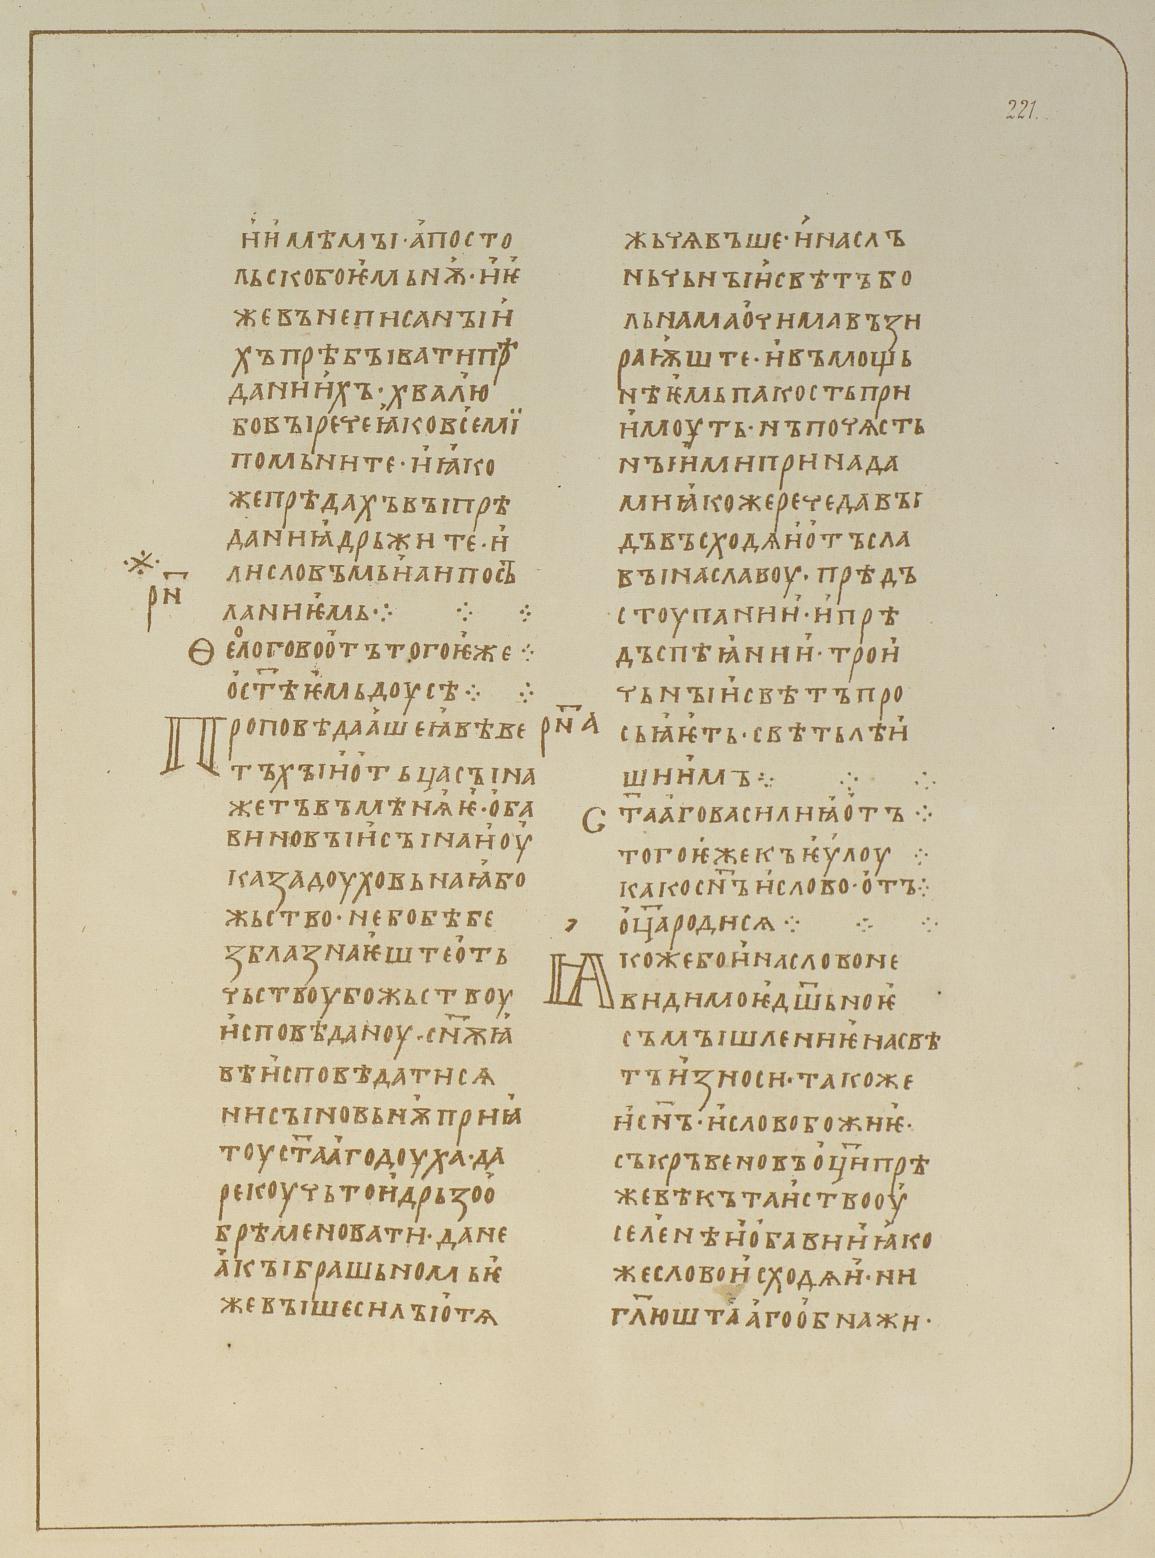 221.
ꙇ҆ и҆мѣмꙑ · а҆посто
льскобоѥ҆мьнѫ҆ · и҆ѥ҆
жевънеписанꙑи҆
хъпрѣбꙑватипрѣ
дании҆хъ · хвалю҆
бовꙑречеꙗ҆ковсемї
помьните · и҆ꙗ҆ко
жепрѣдахъвꙑпрѣ
даниꙗ҆дрьжите · и҆
лисловъмьи҆липосъ
ланиѥ҆мь ⁘ ⁘ ⁘
рн҃
Ѳео҆логовоо҆тътогоѥ҆же ⁘
о҆ст҃ѣѥ҆мьдоусѣ ⁘ ⁘
Проповѣдаа҆шеꙗ҆вѣве
тъхꙑи҆о҆тьцасꙑна
жетъвъмѣнѧѥ҆ · о҆ба
виновꙑи҆сꙑнаи҆оу҆
казадоуховьнаꙗ҆бо
жьство · небобѣбе
зблазнаѥ҆штео҆ть
чьствоубожьствоу
и҆сповѣданоу · сн҃ѫꙗ҆
вѣи҆сповѣдатисѧ
нисꙑновьнѫ҆приꙗ҆
тоуст҃аа҆годоуха · да
рекоучьтои҆дрьзоо҆
брѣменовати · дане
а҆кꙑбрашьномьѥ҆
жевꙑшесилꙑо҆тѧ
жьчѧвъше · и҆насл ъ
ньчьнꙑи҆свѣтъбо
льнамао҆чимавъзи
раѭ҆ште · и҆въмощь
нѣѥ҆мьпакостьпри
и҆моуть · нъпочѧсть
нꙑи҆миприлада
миꙗ҆кожереч­едавꙑ
дъвъсходѧи҆о҆тъсла
вꙑнаславоу · прѣдъ
стоупании҆ · и҆прѣ
дъспѣꙗ҆нии҆ · трои҆
чьнꙑи҆свѣтъпро
сьꙗ҆ѥ҆ть · свѣтьлѣи҆
шиимъ ⁘ ⁘ ⁘
рн҃а
Ст҃аа҆говасилиꙗ҆о҆тъ ⁘
тогоѥ҆жекъѥ҆ѵ҆лоу ⁘
какосн҃ъи҆слово · о҆тъ ⁘
о҆ц҃ародисѧ ⁘ ⁘ ⁘
Ꙗкожебои҆насловоне
видимоѥ҆дш҃ьноѥ҆
съмꙑшлениѥ҆насвѣ
тъи҆зноси · такоже
и҆сн҃ъ · и҆словобожиѥ҆ ·
съкръвеновъо҆ц҃ипрѣ
жевѣкътаи҆ствооу҆
селенѣи҆о҆бавии҆ꙗ҆ко
жесловои҆сходѧи҆ · ни
гл҃юшта а҆гоо҆бнажи ·